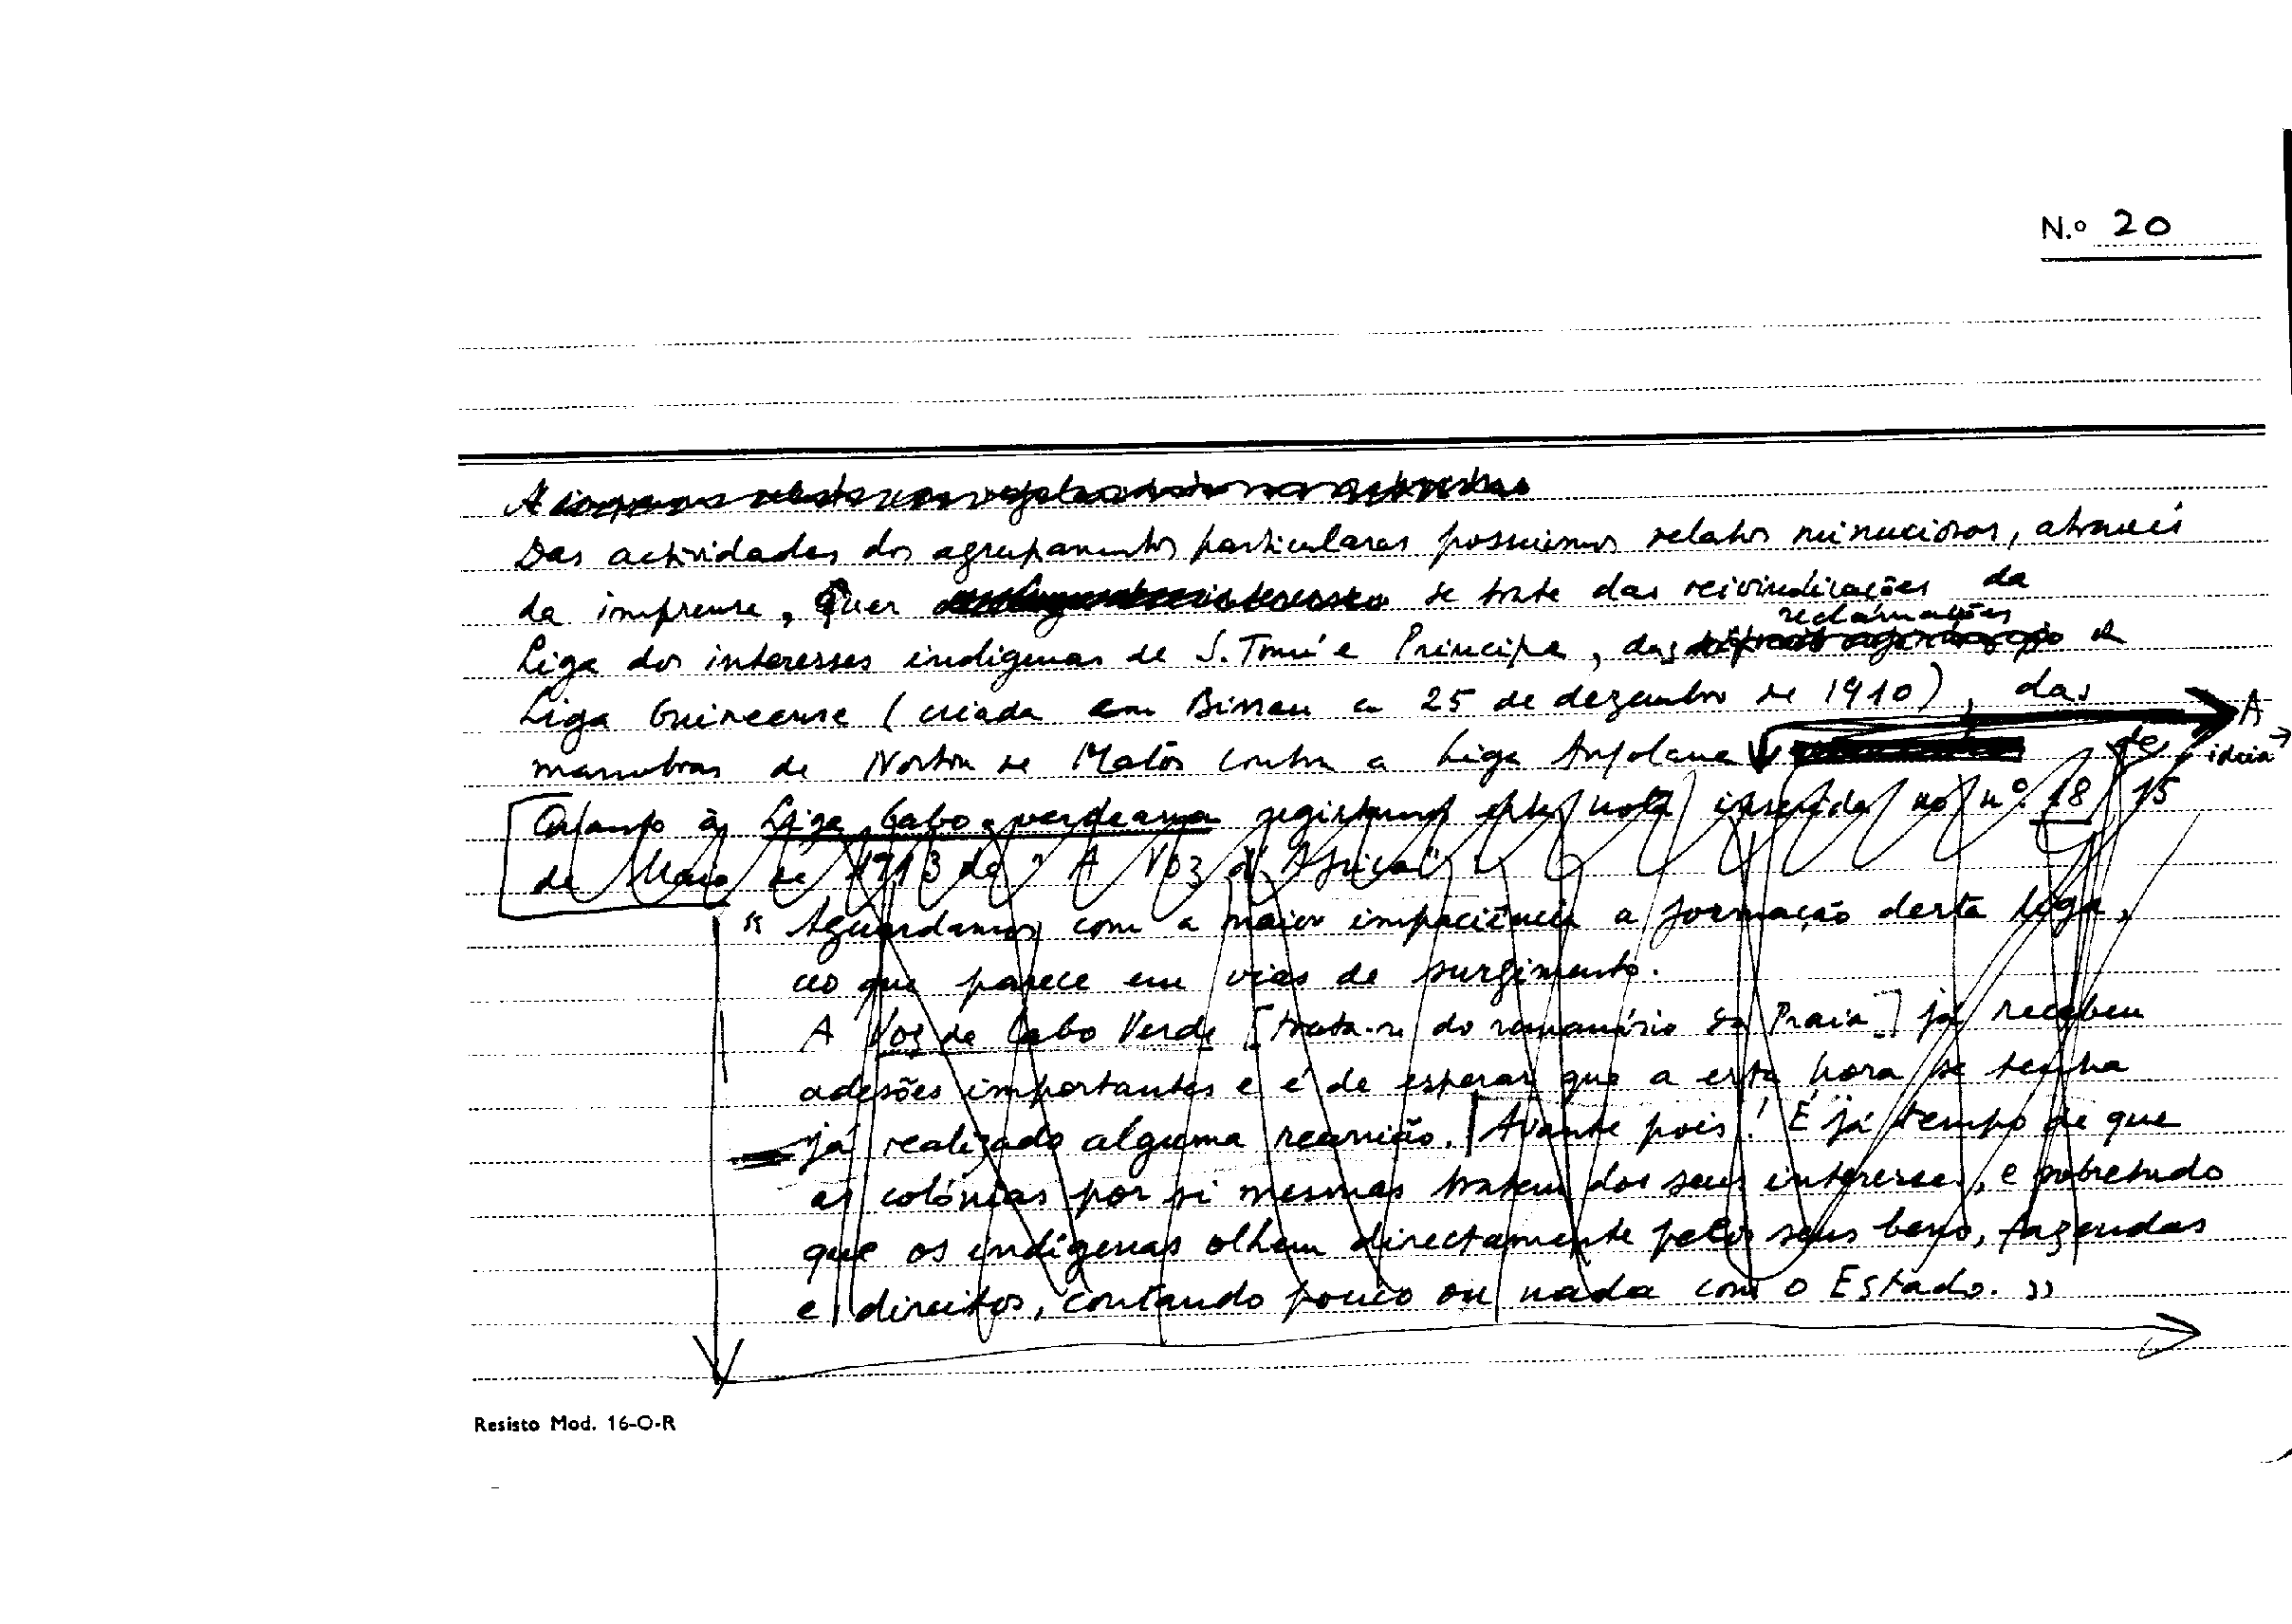 N.º 20
Das actividades dos agrupamentos particulares possuimos relatos minuciosos, através
da imprensa, Quer se trate das reivindicações da
reclamações
Liga dos interesses indígenas de S. Tomé e Principe, das de
Liga Guineense (criada em Bissau a 25 de dezembro de 1910), das
A
manobras de Norton de Matos contra a Liga Angolana de
ideia →
Quanto à Liga Cabo-verdeana registamos esta nota inserida no nº. 18 15
de Maio de 1913 de "A Voz d'Africa":
« Aguardamos com a maior impaciência a formação desta liga,
ao que parece em vias de surgimento.
A Voz de Cabo Verde [trata-se do semanário da Praia] já recebeu
adesões importantes e é de esperar que a esta hora se tenha
já realizado alguma reunião. Avante pois! É já tempo de que
as colónias por si mesmas tratem dos seus interesses, e sobretudo
que os indígenas olhem directamente pelos seus bens, fazendas
e direitos, contando pouco ou nada com o Estado. »
Resisto Mod. 16-O-R